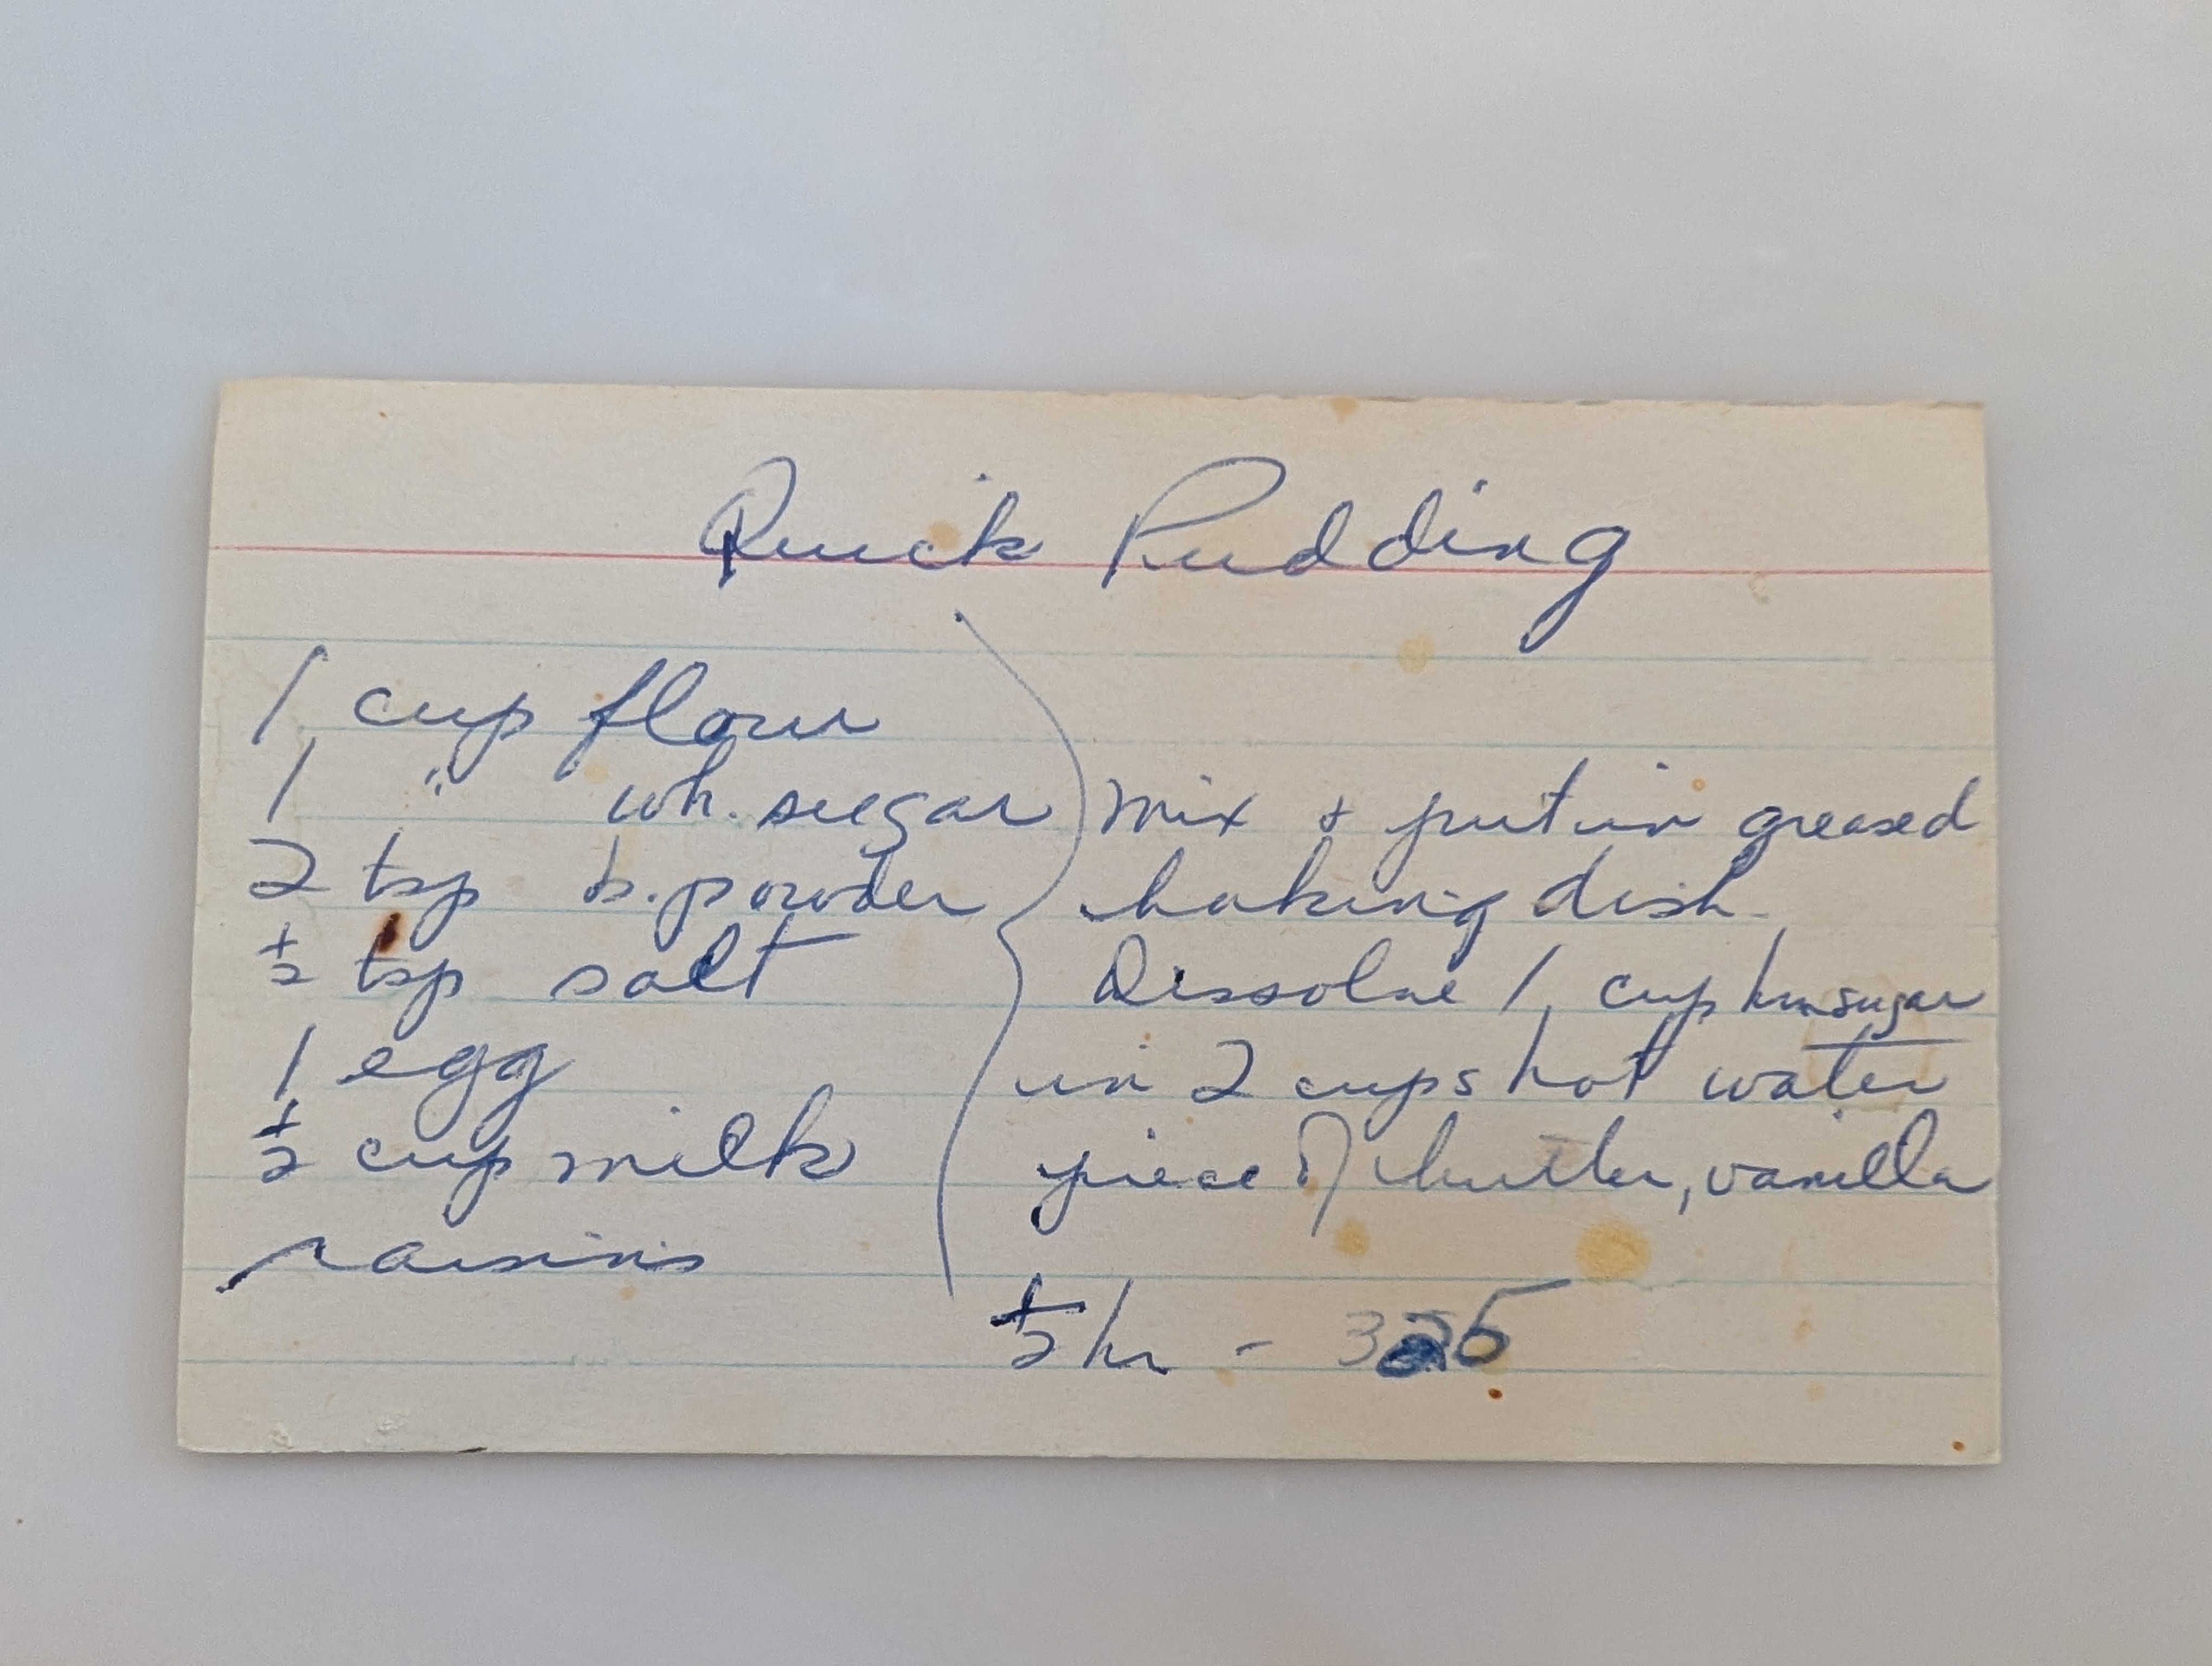 Quick Pudding
1 cup flour
1 " wh. sugar
2 tsp b. powder
½ tsp salt
1 egg
½ cup milk
raisins
mix + put in greased
baking dish.
Dissolve 1 cup brn sugar
in 2 cups hot water
piece of butter, vanilla
½ hr - 325